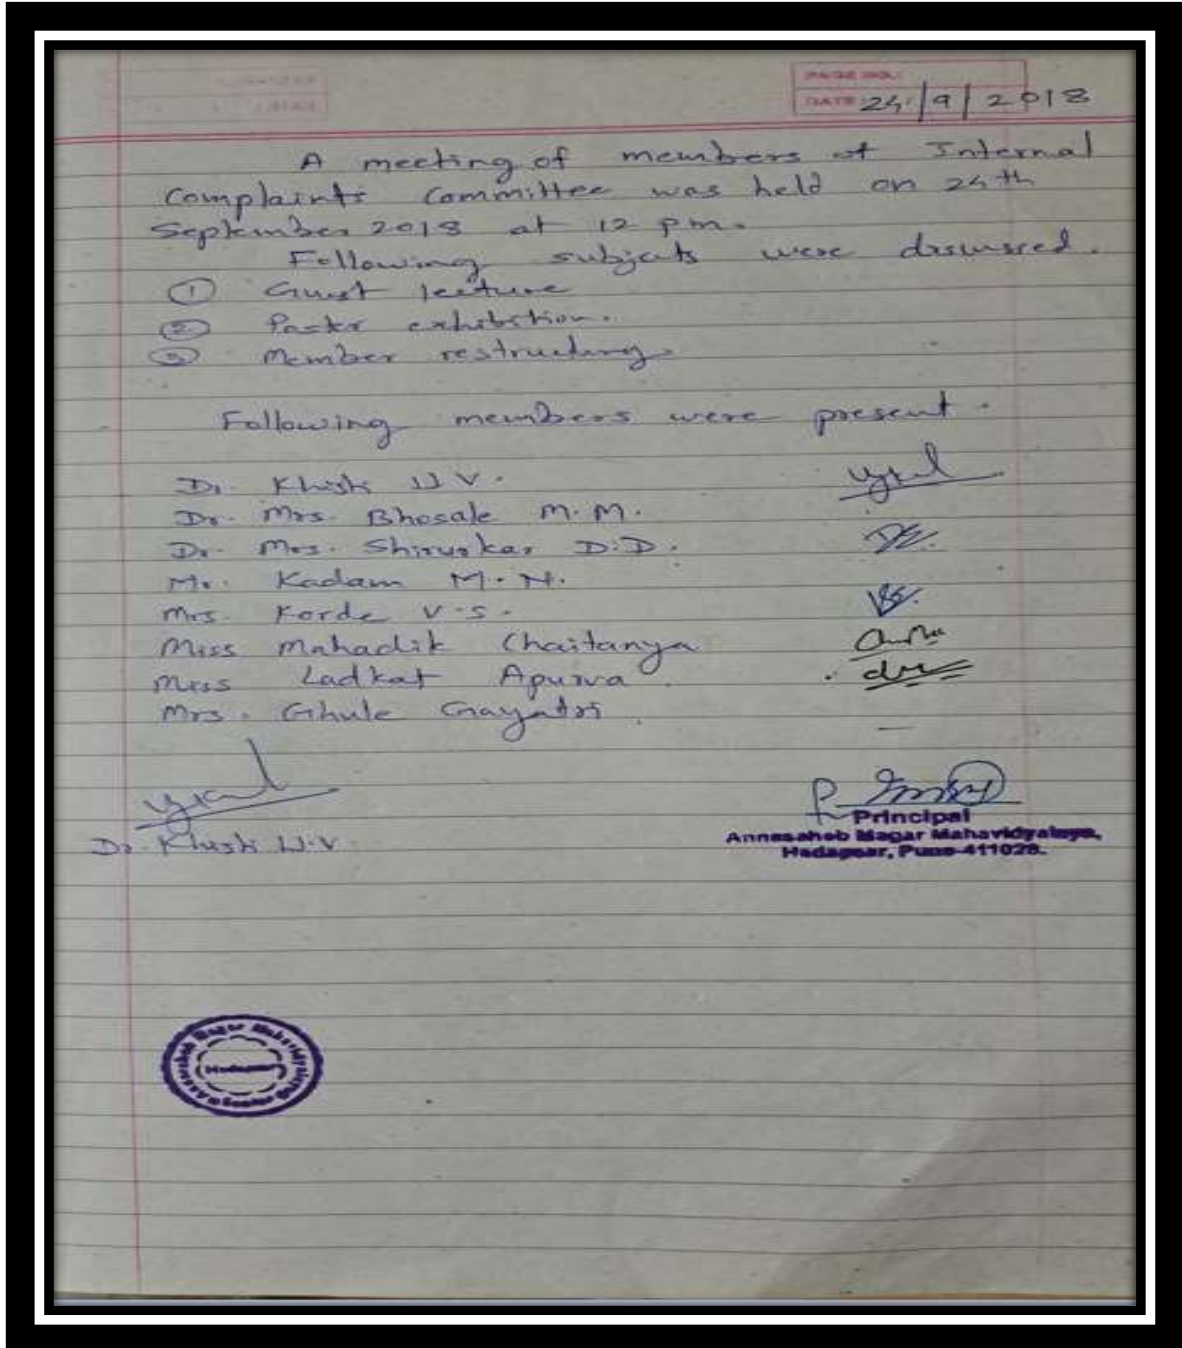 PAGE NO.:
DATE: 24/9/2018
A meeting of members of Internal
Complaints Committee was held on 24th
September 2018 at 12 pm.
Following subjects were discussed.
① Guest lecture
② Poster exhibition.
③ Member restructing.
Following members were present.
Dr. U.V.
Dr. Mrs. Bhosale M.M.
Dr. Mrs. Shirurkar D.D.
Mr. Kadam M.N.
Mrs. Korde V.S.
Miss Mahadik Chaitanya
Miss Ladkat Apurva.
Mrs. Ghule Gayatri.
Dr. U.V.
Principal
Annasaheb Magar Mahavidyalaya,
Hadapsar, Pune-411028.
Annasaheb Magar Mahavidyalaya
Hadapsar